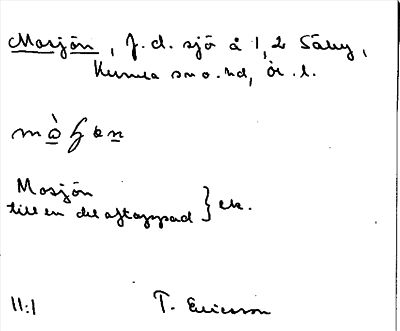 Mosjön, f.d. sjö å 1,2 Säby,
Kumla sn o. hd, Ör. l.
Mosjön
till en del aftappad } ek.
11:1 T. Ericsson